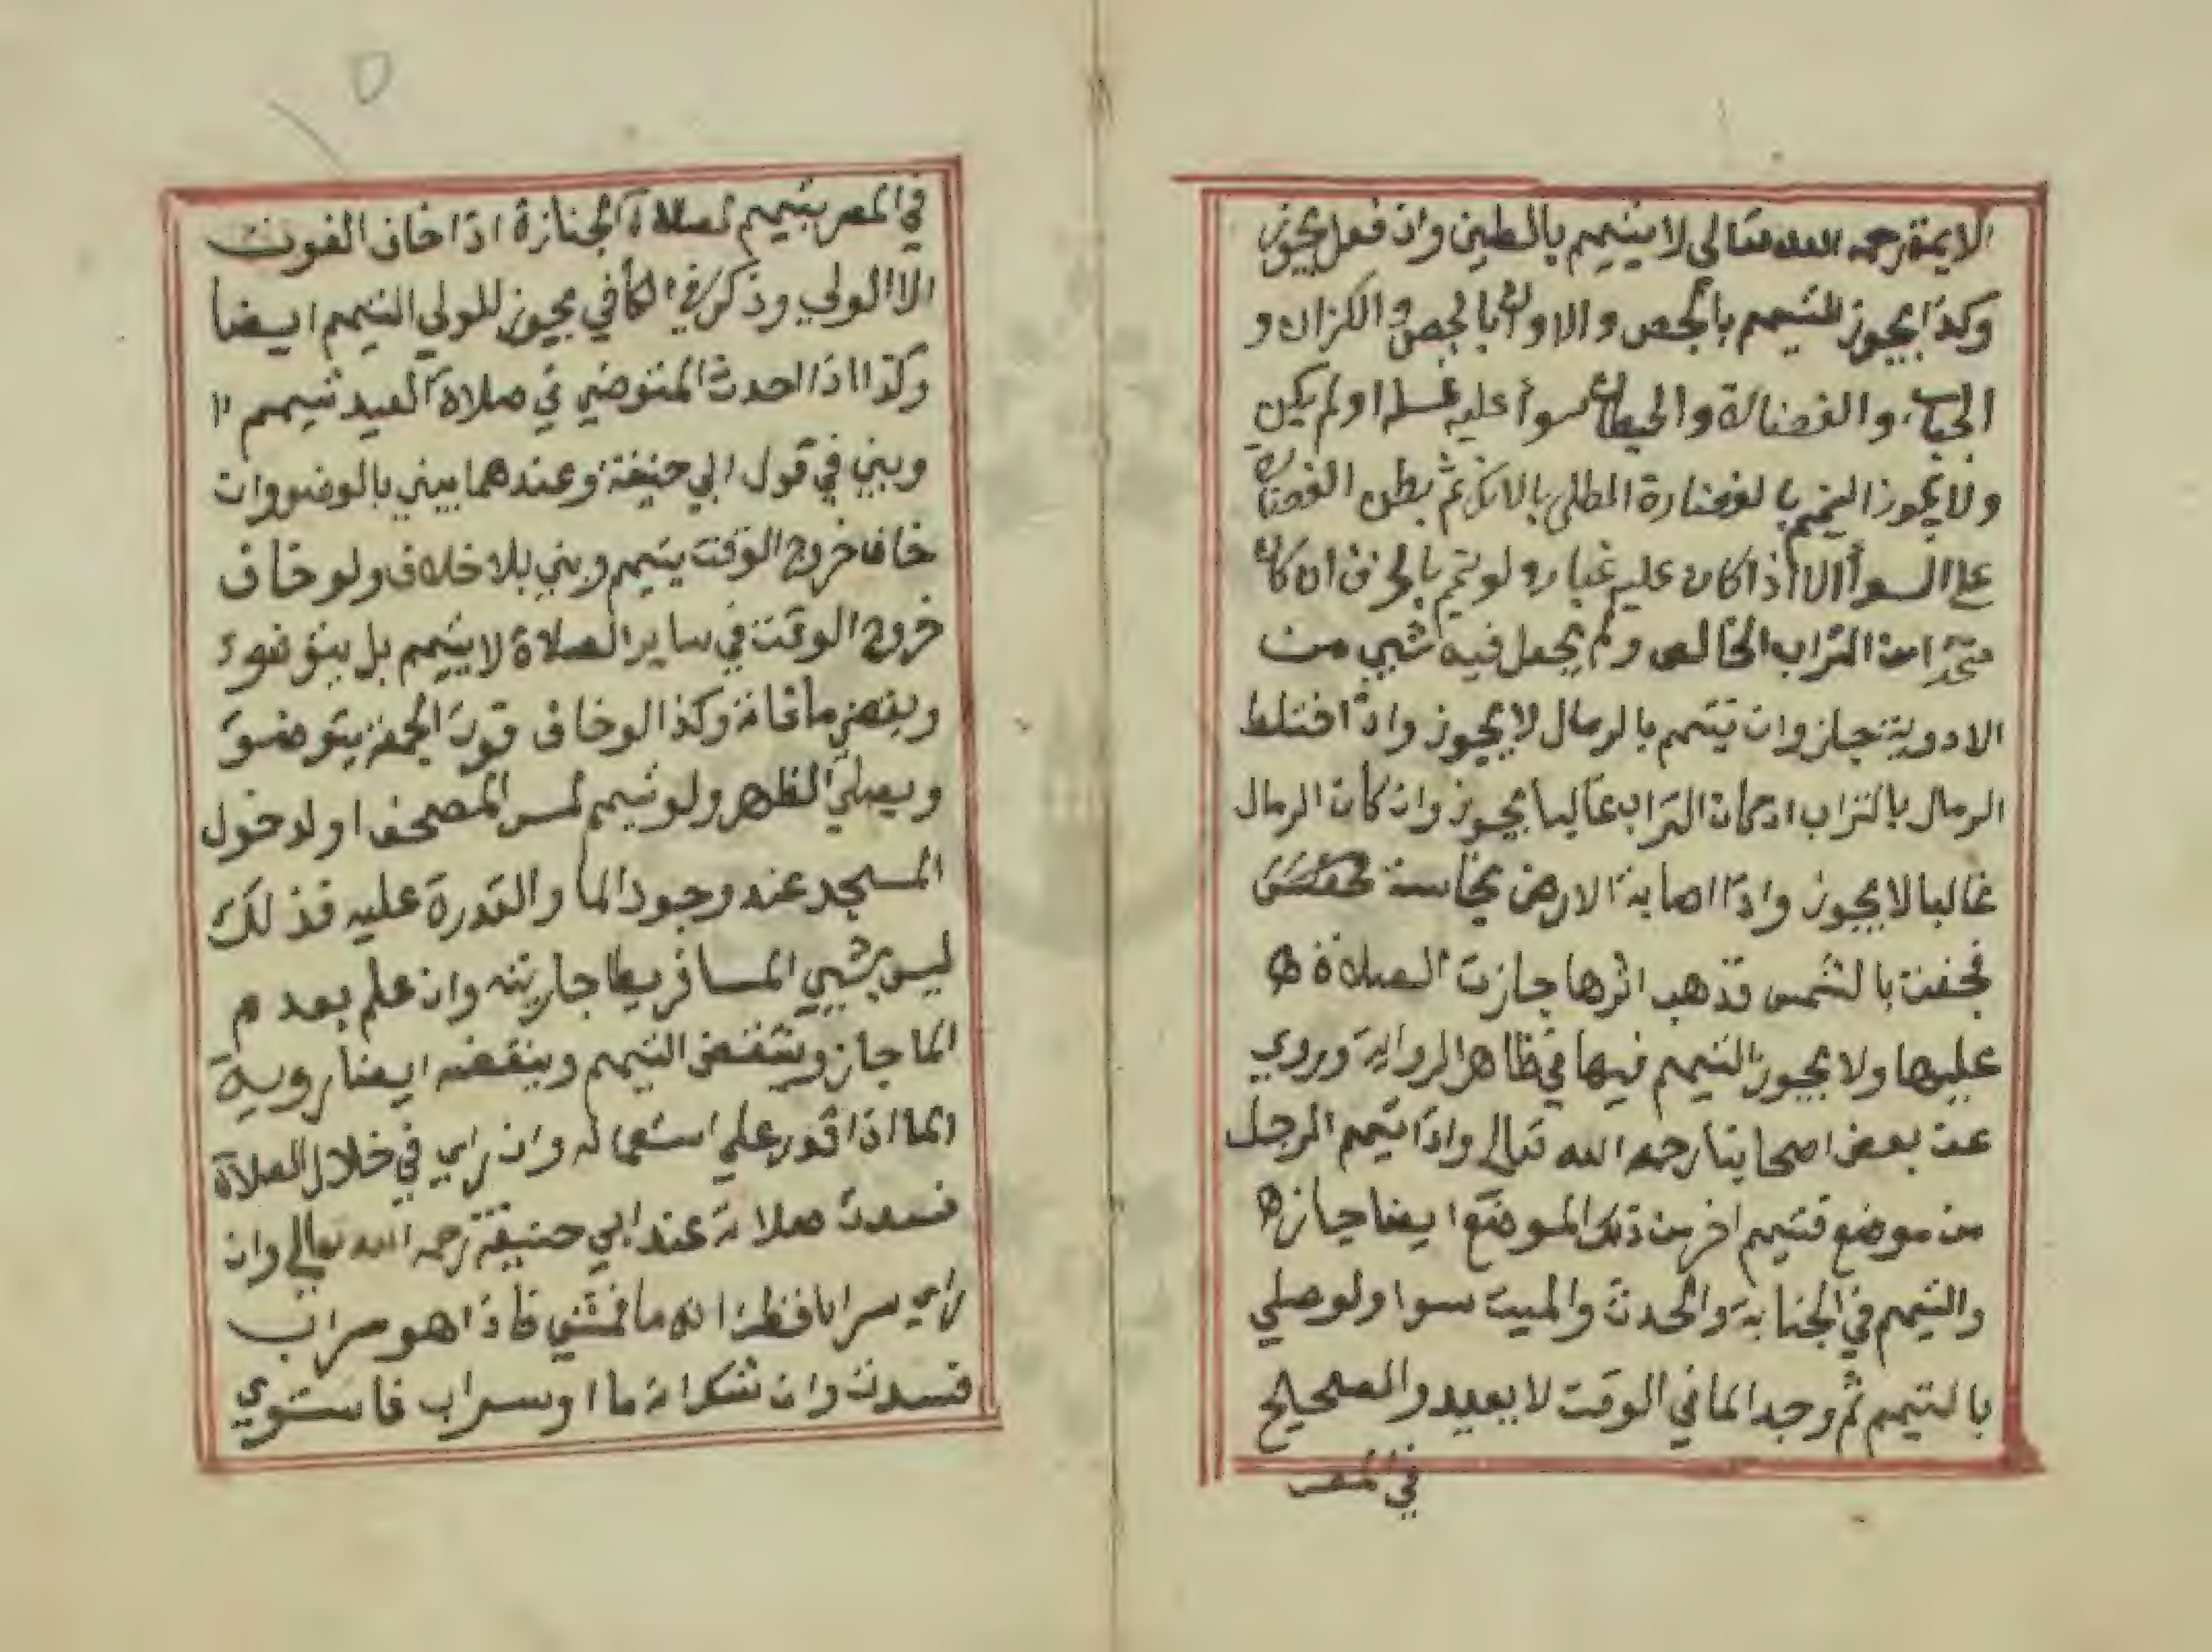 الايمة رحمه الله تعالى لا يتيمم بالطين وان فعل يجوز
وكذا يجوز للتيمم بالجص والاوان بالجص والكزان و
الجباب والغضارة والحيطان سوأ عليه غسله او لم يكن
ولا يجوز التيمم بالغضارة المطلى بالانك ثم بطن الغضارة
على السوأ الا اذا كان عليه غبار ولو تيمم بالخزف ان كان
متخذا من التراب الخالص ولم يجعل فيه شيي من
الادوية جاز وان تيتمم بالرمال لا يجوز واذا اختلط
الرمال بالتراب ان كان التراب غالبا يجوز وان كان الرمال
غالبا لا يجوز واذا اصابة الارض نجاسة
فجفت بالشمس فذهب اثرها جازت الصلاة
عليها ولا يجوز التيمم فيها في ظاهر الرواية وروي
عن بعض اصحابنا رحمه الله تعالى واذا تيمم الرجل
من موضع فتيمم اخر من ذلك الموضع ايضا جاز
والتيمم في الجنابة والحدث والميت سوا ولو صلي
بالتيمم ثم وجد الما في الوقت لا يعيد والصحيح
في المصر
في المصر بتيمم لصلاة الجنازة اذا خاف الفوت
الا الولي وذكر في الكافي يجوز للولي التيمم ايضا
وكذا اذا احدث المتوضي في صلاة العيد تيمم
ويبني في قول ابي حنيفة وعندهما يبني بالوضووان
خاف خروج الوقت يتيمم ويبني بلا خلاف ولو خاف
خروج الوقت في ساير الصلاة لا يتيمم بل يتوضوء
ويقضي ما فاته وكذا لو خاف فوت الجمعة يتوضوء
ويصلي الظهر ولو تيمم لمس المصحف او لدخول
المسجد عند وجود الما والقدرة عليه فذلك
ليس بشيي المسافر يطا جاريته وان علم بعدم
الما جاز وينتقض التيمم وينقضه ايضا روية
الما اذا قدر علي استعماله وان راي في خلال الصلاة
فسدت صلاته عند ابي حنيفة رحمه الله تعالى وان
راي سرابا فظن انه ما فمشي فاذا هو سراب
فسدت وان شك انه ما او سراب فاستوي